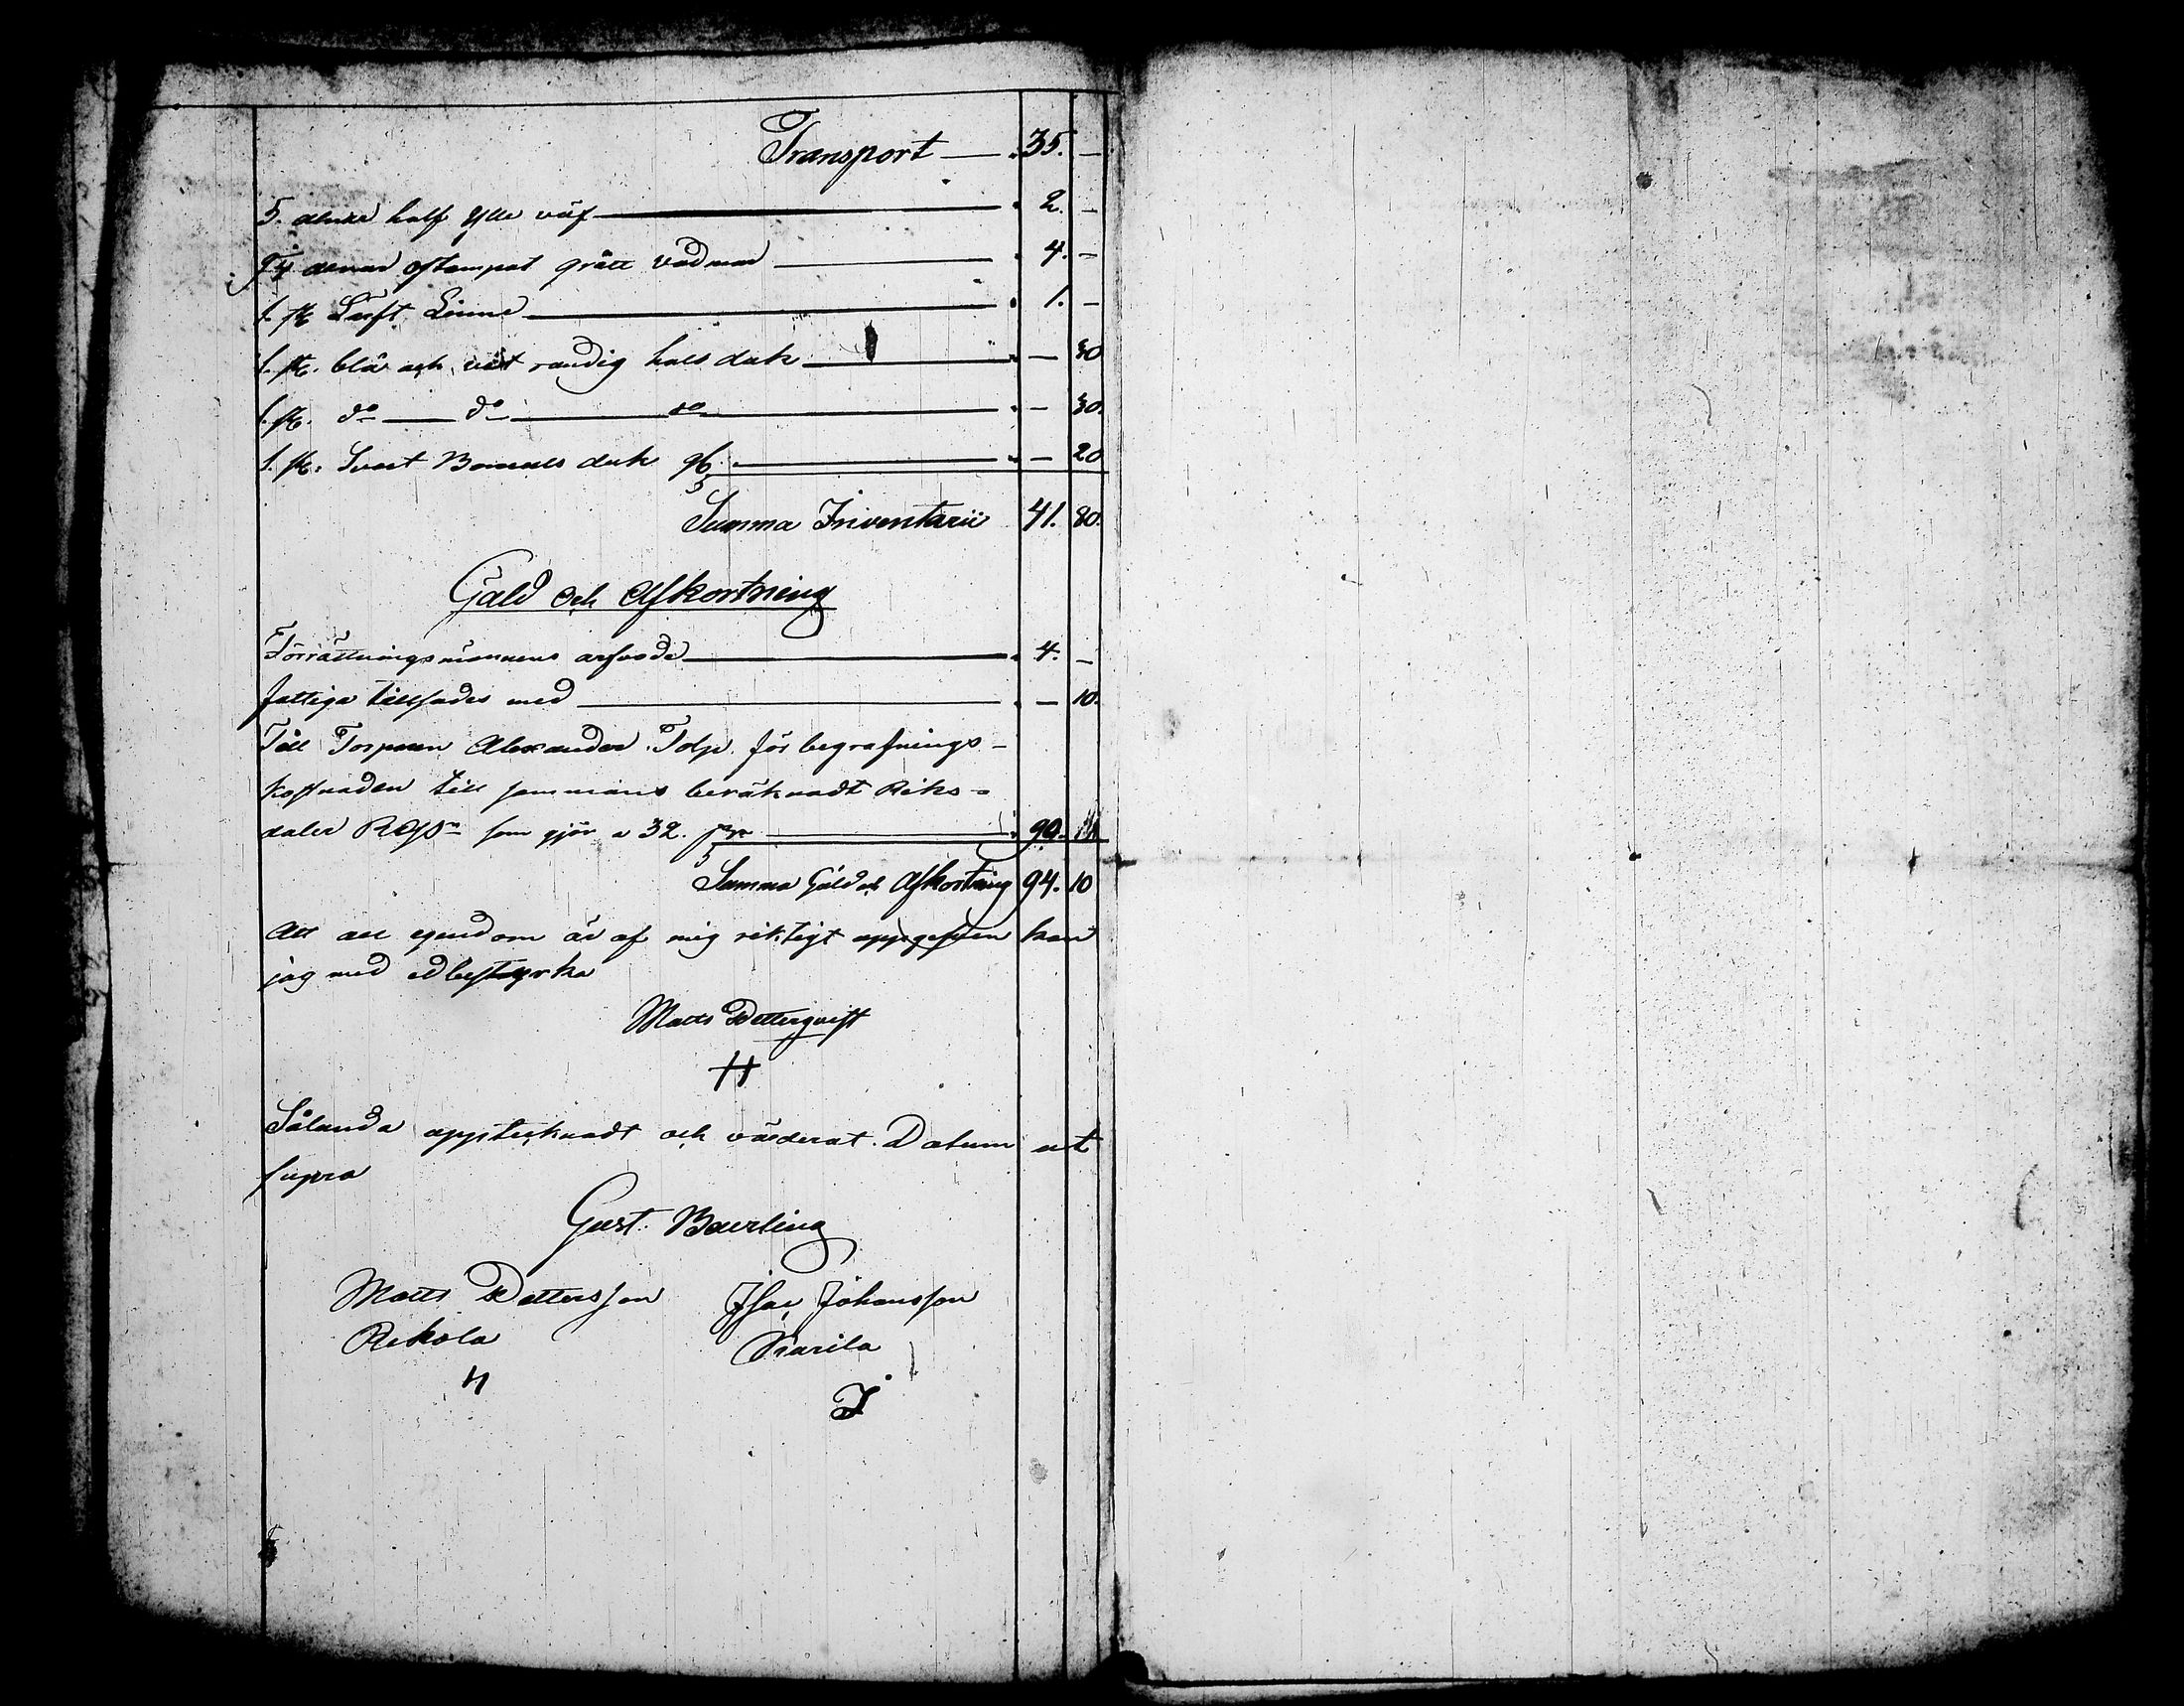 Transport — 35. —
5. alnar half ylle väf — 2. —
4 alnar ostampat grått vadmal — 4. —
1. st. Lärft Linne — 1. —
1. st. blå och vit randig hals duk — — 30
1. st. do — do — do — — 30.
1. st. Svart Bomuls duk — — 20
Summa Inventarii 41. 80.
Gäld och Afkortning
Förrättningsmännens arfvode — 4. —
fattiga tillsades med — — 10.
Till Torparen Alexander Tolp. för begrafnings-
kostnaden till sammans beräknadt Riks-
daler RGS som gjör a 32. — 90.
Summa Gäld och Afkortning 94. 10
Att all egendom är af mig riktigt uppgifven kan
jag med ed bestyrka
Matts Petterqvist
Sålunda upptecknadt och värderat. Datum ut
supra
Gust. Baurling
Matts Pettersson Isac Johansson
Rekola Skarila
I